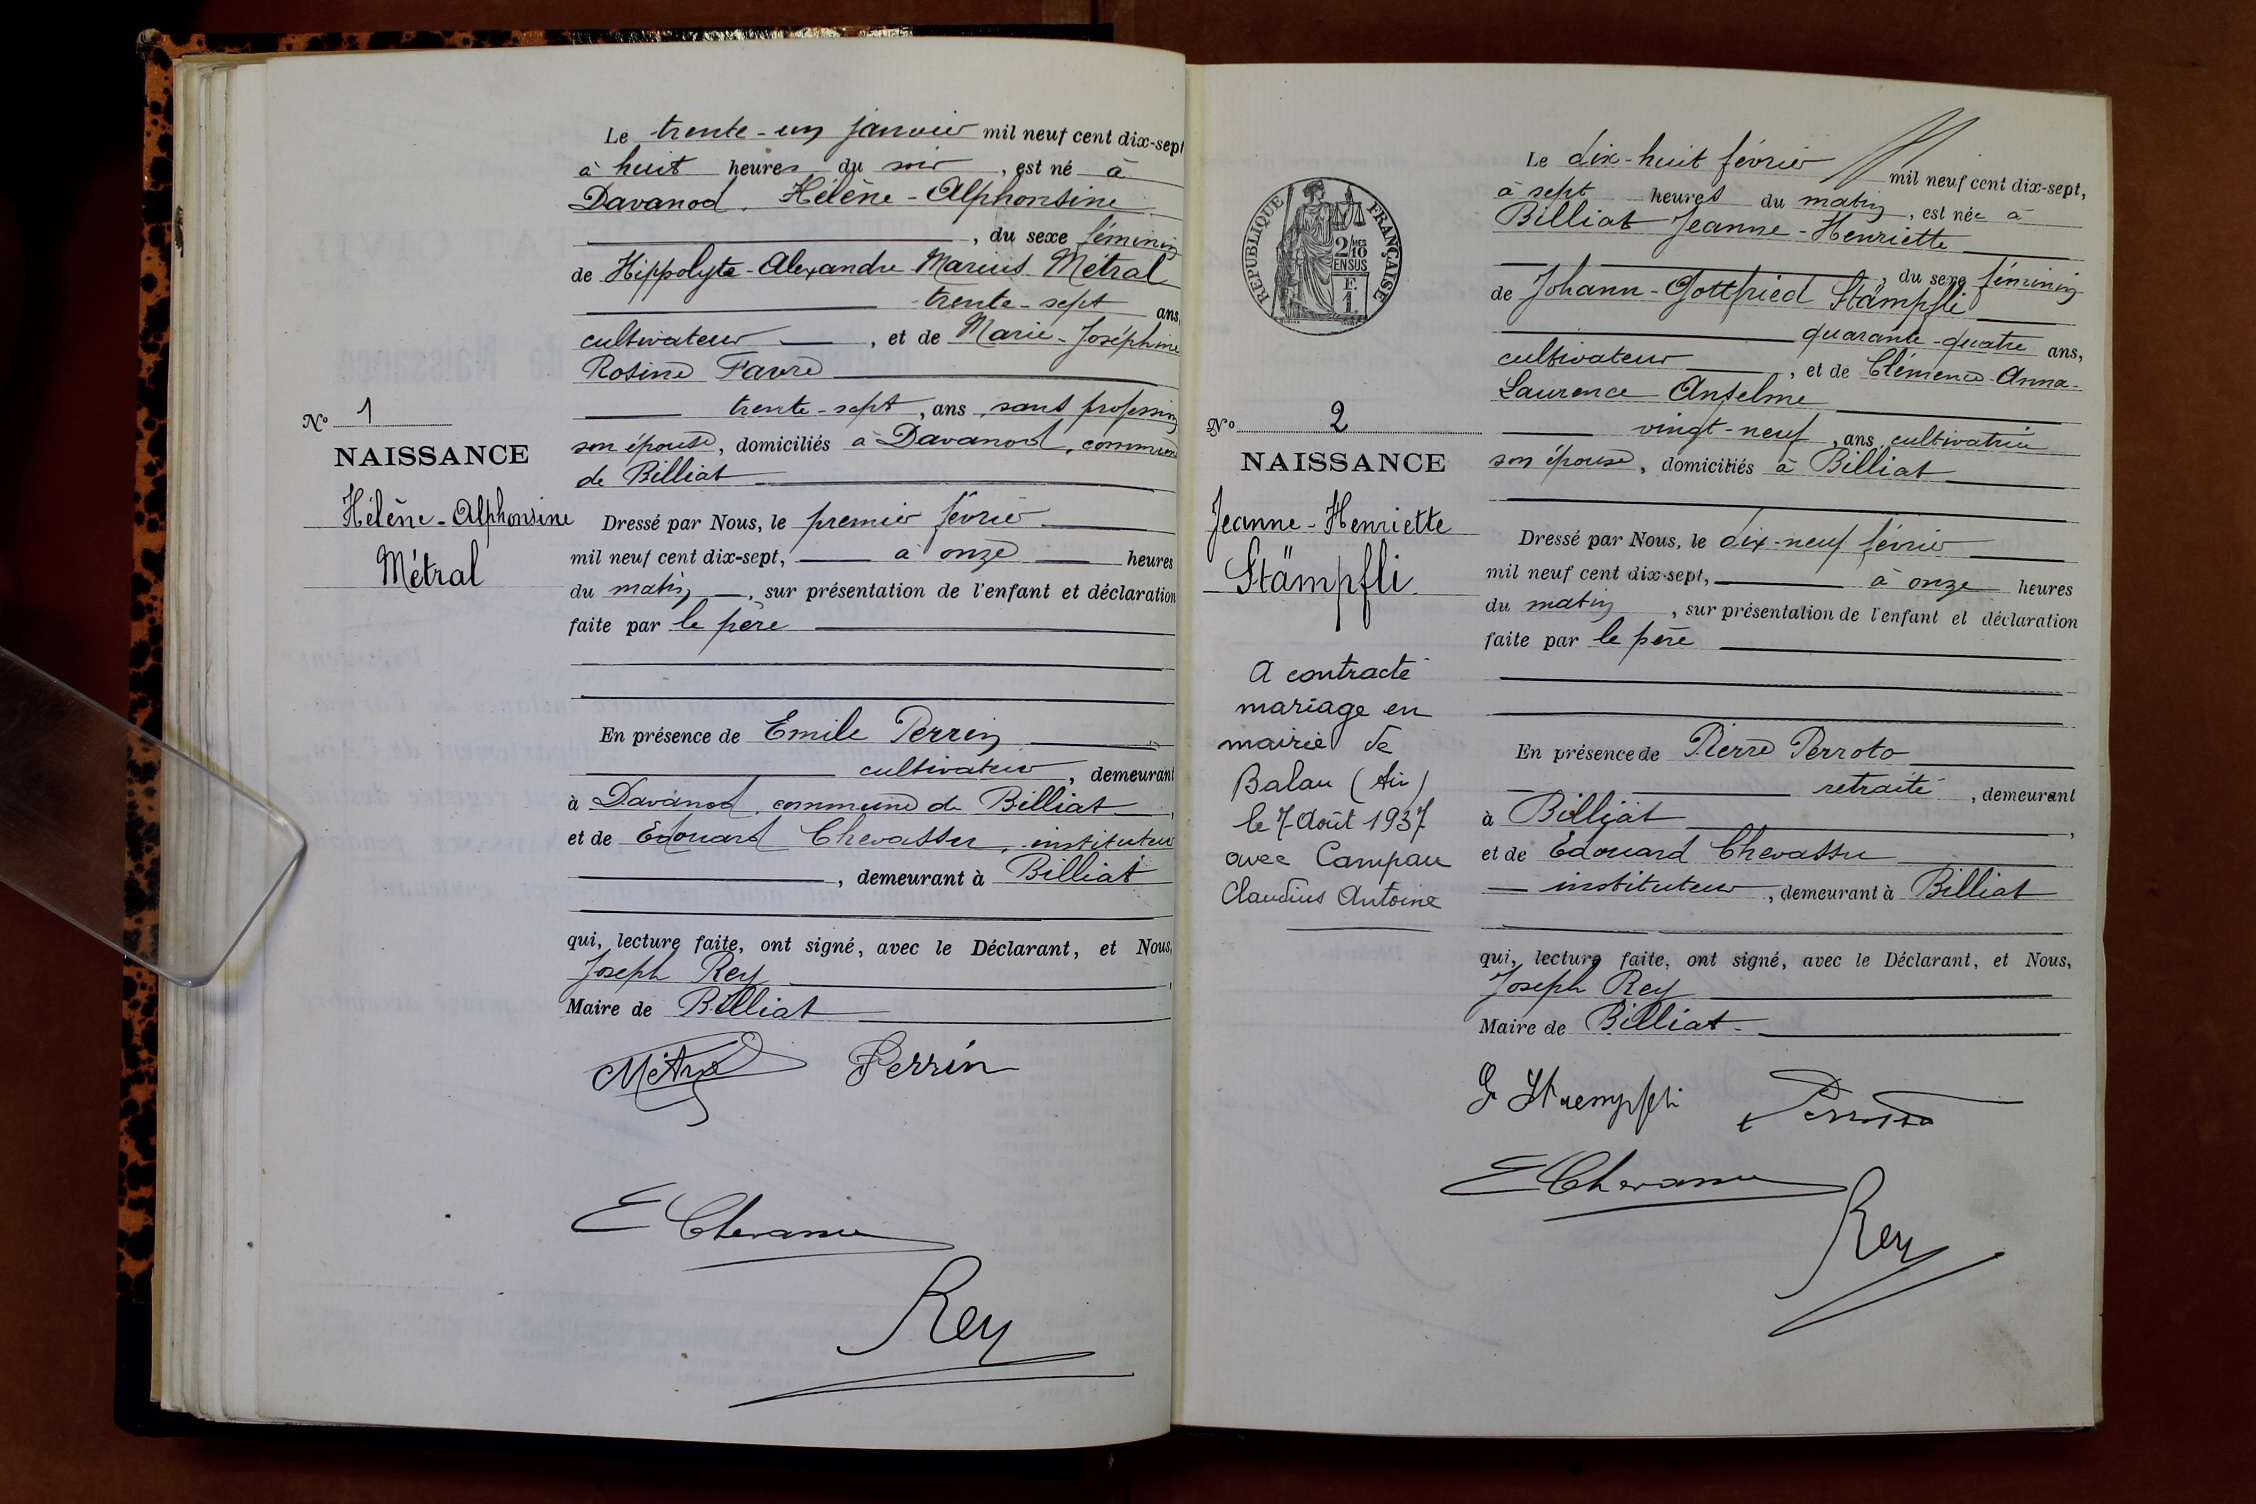 Le trente-un janvier mil neuf cent dix-sept
à huit heures du soir, est né à
Davanod, Hélène-Alphonsine
, du sexe féminin
de Hippolyte-Alexandre Marius Métral
trente-sept ans,
cultivateur, et de Marie-Joséphine
Rosine Favre
trente-sept, ans, sans profession
son épouse, domiciliés à Davanod, commune
de Billiat
Nº 1
NAISSANCE
Hélène-Alphonsine
Métral
Dressé par Nous, le premier février
mil neuf cent dix-sept, à onze heures
du matin, sur présentation de l'enfant et déclaration
faite par le père
En présence de Emile Perrin
cultivateur, demeurant
à Davanod, commune de Billiat,
et de Edouard Chevassu, instituteur
, demeurant à Billiat
qui, lecture faite, ont signé, avec le Déclarant, et Nous,
Joseph Rey,
Maire de Billiat
Métral Perrin
E Chevassu
Rey
RÉPUBLIQUE FRANÇAISE
2/10
EN SUS
F.
1
Le dix-huit février mil neuf cent dix-sept,
à sept heures du matin, est née à
Billiat Jeanne-Henriette
, du sexe féminin
de Johann-Gottfried Stämpfli
quarante-quatre ans,
cultivateur, et de Clémence-Anna-
Laurence Anselme
vingt-neuf, ans, cultivatrice
son épouse, domiciliés à Billiat
Nº 2
NAISSANCE
Jeanne-Henriette
Stämpfli
A contracté
mariage en
mairie de
Balan (Ain)
le 7 Août 1937
avec Campan
Claudius Antoine
Dressé par Nous, le dix-neuf février
mil neuf cent dix-sept, à onze heures
du matin, sur présentation de l'enfant et déclaration
faite par le père
En présence de Pierre Perroto
retraité, demeurant
à Billiat,
et de Edouard Chevassu
instituteur, demeurant à Billiat
qui, lecture faite, ont signé, avec le Déclarant, et Nous,
Joseph Rey
Maire de Billiat
G Staempfli
E Chevassu
Rey